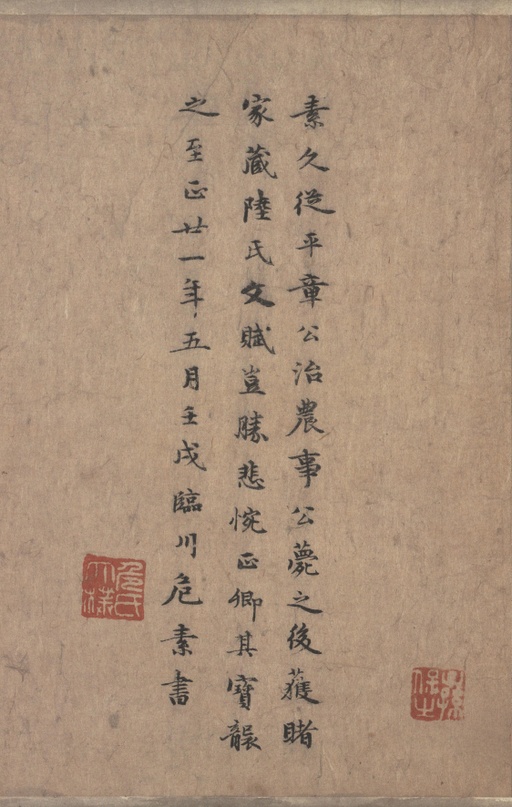 素久從平章公治農事公薨之後獲睹
家藏陸氏文賦豈勝悲惋正卿其寶襲
之至正廿一年五月壬戌臨川危素書
危氏太樸